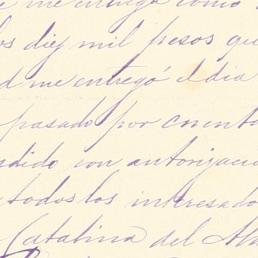 me entrega como
diez mil pesos que
me entregó el dia
pasado por cuenta
con autorizacio
todos los interesado
Catalina del